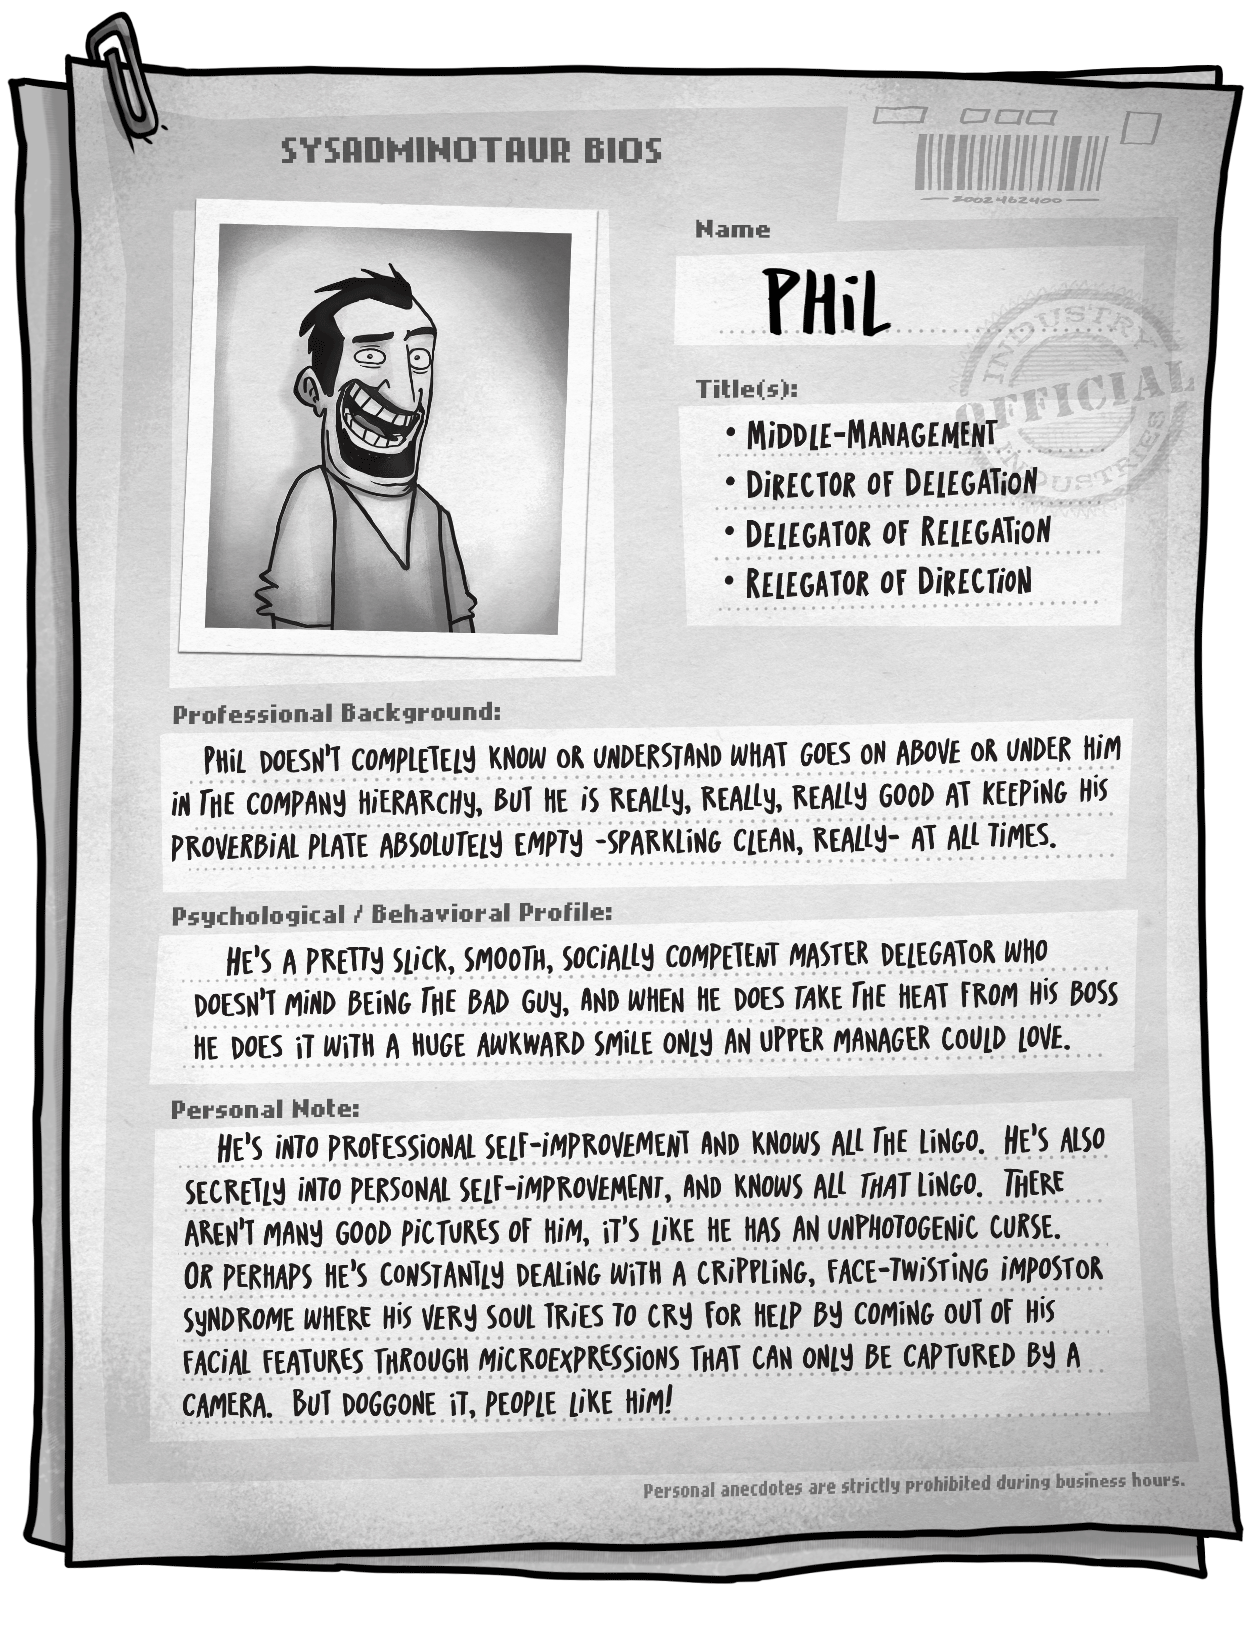 SYSADMINOTAUR BIOS
2002462400
Name
PHiL
INDUSTRY
OFFICIAL
INDUSTRIES
Title(s):
• MiDDLE-MANAGEMENT
• DiRECTOR OF DELEGATiON
• DELEGATOR OF RELEGATiON
• RELEGATOR OF DiRECTiON
Professional Background:
PHiL DOESN'T COMPLETELY KNOW OR UNDERSTAND WHAT GOES ON ABOVE OR UNDER HiM
iN THE COMPANY HiERARCHY, BUT HE iS REALLY, REALLY, REALLY GOOD AT KEEPiNG HiS
PROVERBiAL PLATE ABSOLUTELY EMPTY -SPARKLiNG CLEAN, REALLY- AT ALL TiMES.
Psychological / Behavioral Profile:
HE'S A PRETTY SLiCK, SMOOTH, SOCiALLY COMPETENT MASTER DELEGATOR WHO
DOESN'T MiND BEiNG THE BAD GUY, AND WHEN HE DOES TAKE THE HEAT FROM HiS BOSS
HE DOES iT WiTH A HUGE AWKWARD SMiLE ONLY AN UPPER MANAGER COULD LOVE.
Personal Note:
HE'S iNTO PROFESSiONAL SELF-iMPROVEMENT AND KNOWS ALL THE LiNGO. HE'S ALSO
SECRETLY iNTO PERSONAL SELF-iMPROVEMENT, AND KNOWS ALL THAT LiNGO. THERE
AREN'T MANY GOOD PiCTURES OF HiM, iT'S LiKE HE HAS AN UNPHOTOGENiC CURSE.
OR PERHAPS HE'S CONSTANTLY DEALiNG WiTH A CRiPPLiNG, FACE-TWiSTiNG iMPOSTOR
SYNDROME WHERE HiS VERY SOUL TRiES TO CRY FOR HELP BY COMiNG OUT OF HiS
FACiAL FEATURES THROUGH MiCROEXPRESSiONS THAT CAN ONLY BE CAPTURED BY A
CAMERA. BUT DOGGONE iT, PEOPLE LiKE HiM!
Personal anecdotes are strictly prohibited during business hours.